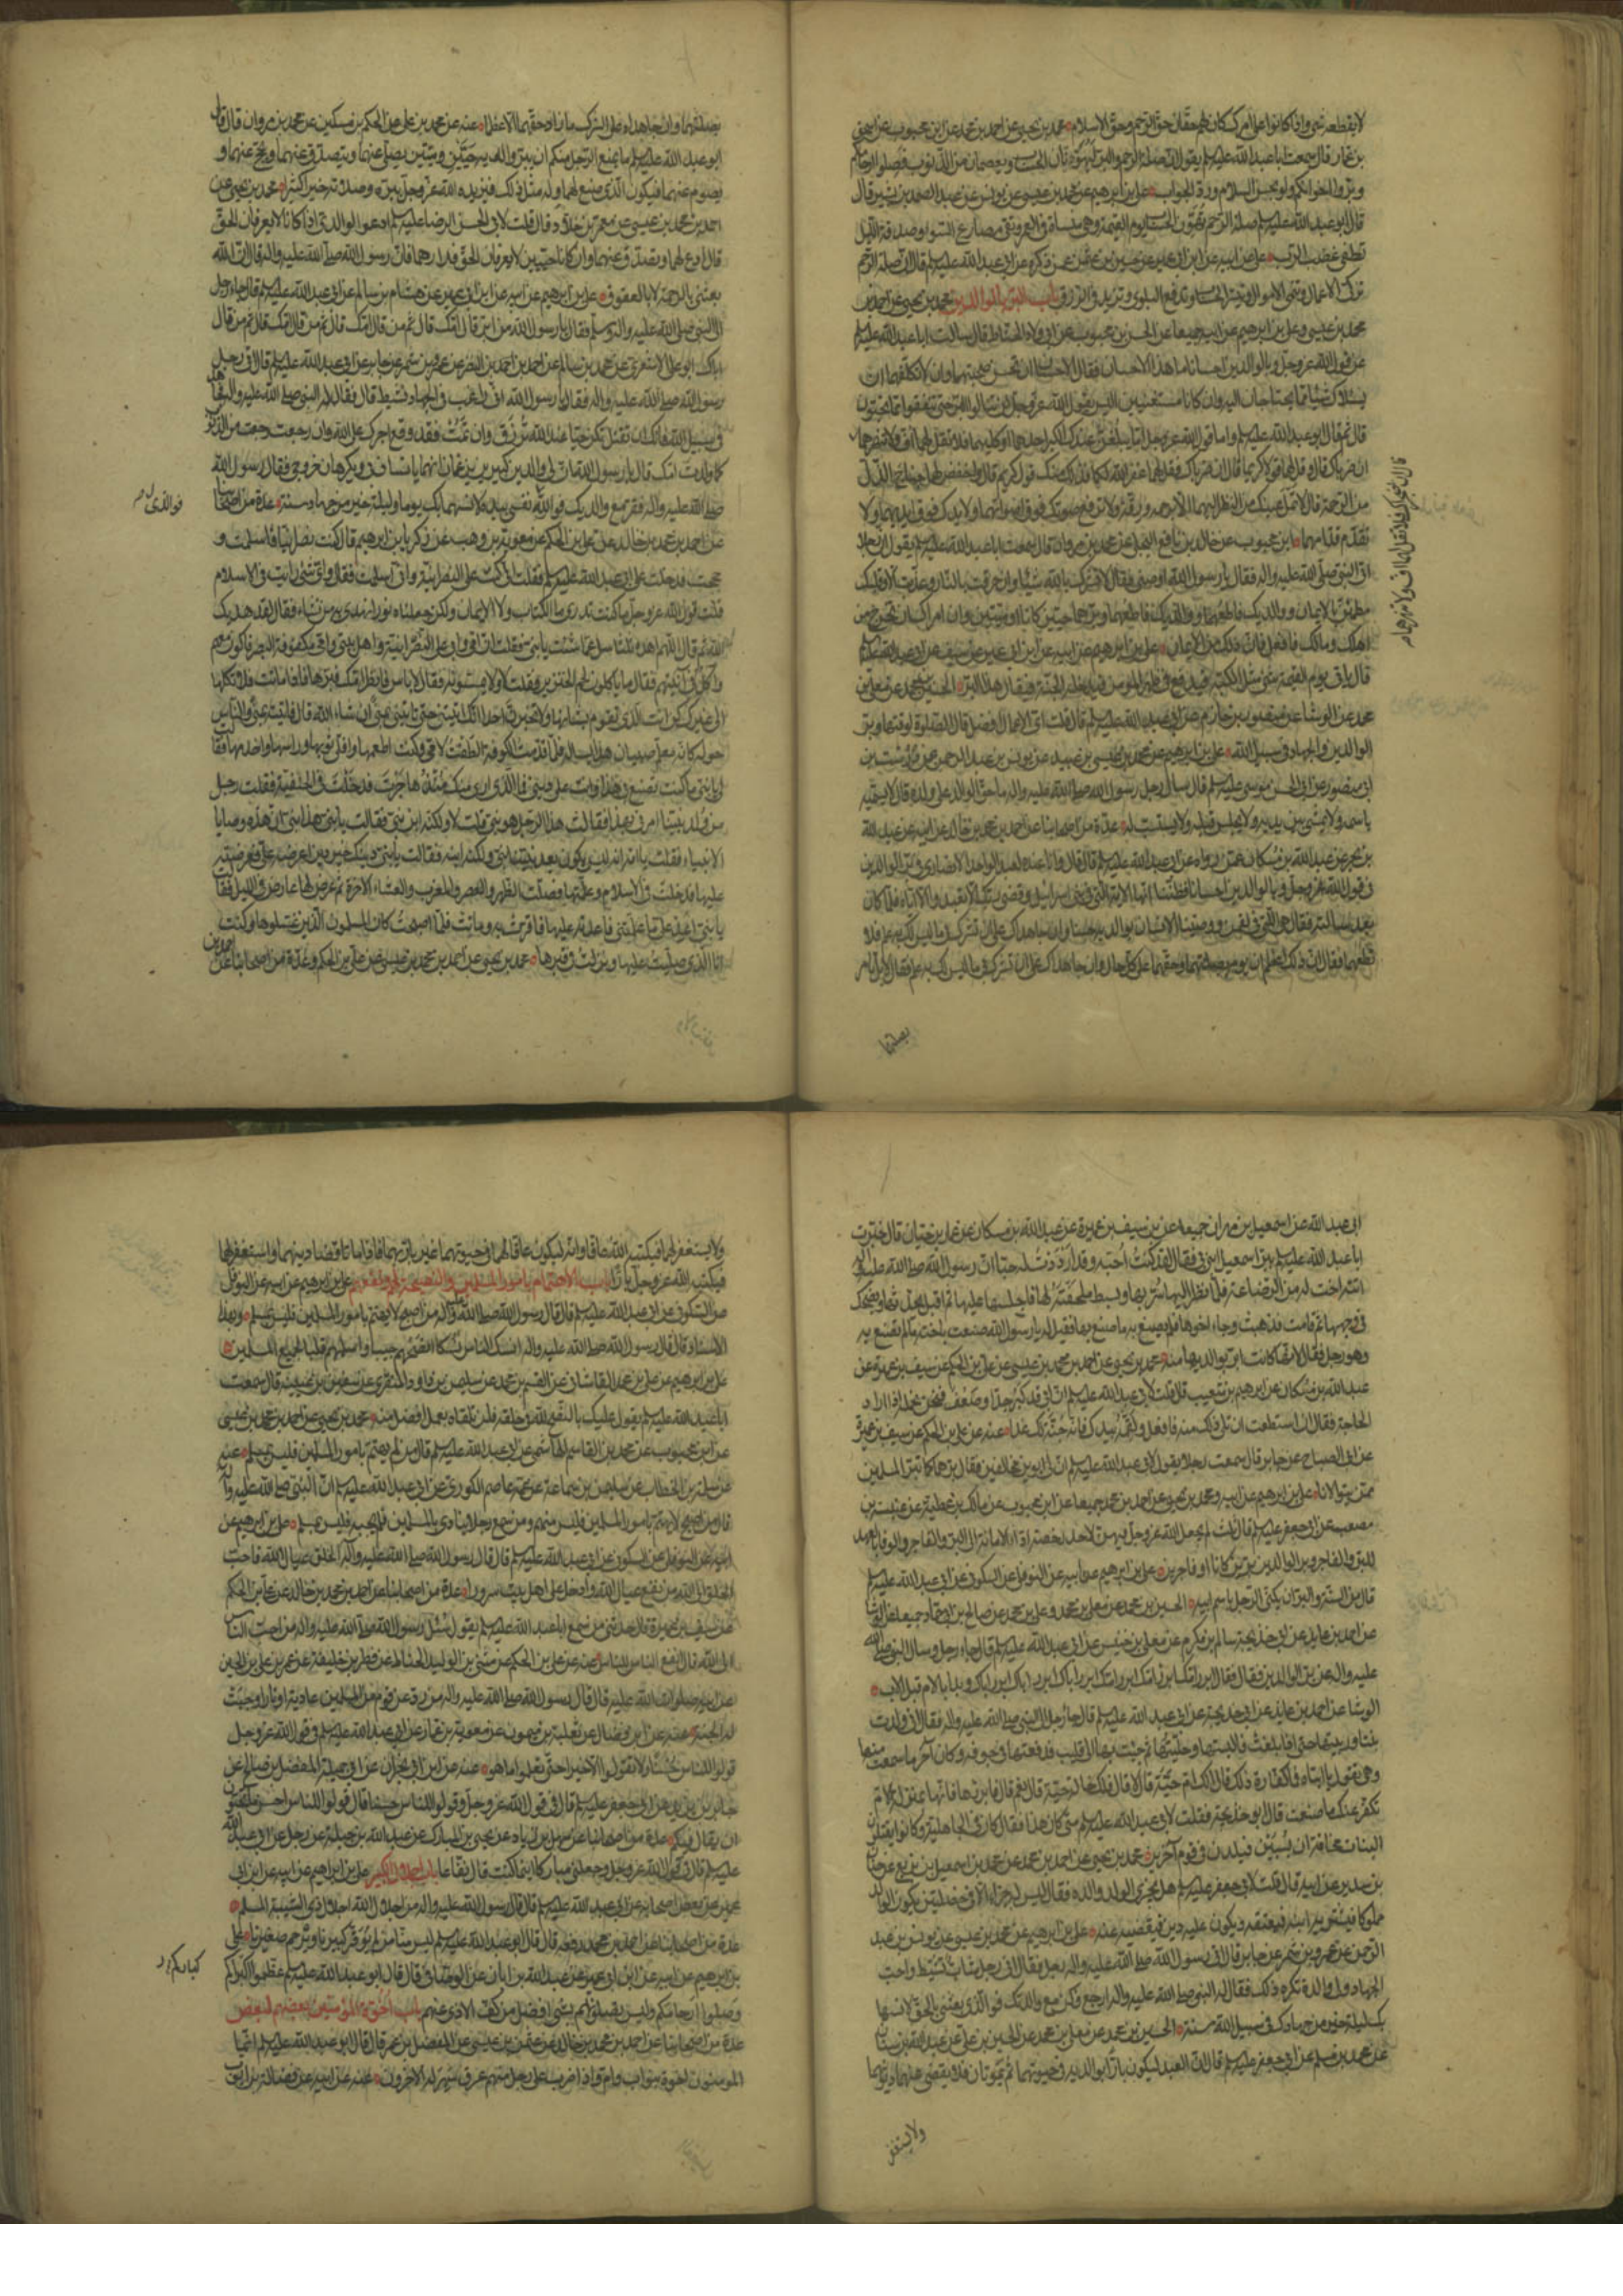 لا يقطعه شيء واذا كانوا على امرك كان لهم حقان حق الرحم وحق الاسلام محمد بن يحيى عن احمد بن محمد عن ابن محبوب عن اسحق
بن عمار قال سمعت ابا عبد الله عليه السلم يقول ان صلة الرحم والبر ليهونان الحساب ويعصمان من الذنوب فصلوا ارحامكم
وبروا باخوانكم ولو بحسن السلام ورد الجواب علي بن ابرهيم عن محمد بن عيسى عن يونس عن عبد الصمد بن بشير قال
قال ابو عبد الله عليه السلم صلة الرحم تهون الحساب يوم القيمة وهي منسأة في العمر وتقي مصارع السوء وصدقة الليل
تطفئ غضب الرب علي عن ابيه عن ابن ابي عمير عن حسين بن عثمن عمن ذكره عن ابي عبد الله عليه السلم قال ان صلة الرحم
تزكي الاعمال وتنمي الاموال وتيسر الحساب وتدفع البلوى وتزيد في الرزق باب البر بالوالدين محمد بن يحيى عن احمد بن
محمد بن عيسى وعلي بن ابرهيم عن ابيه جميعا عن الحسن بن محبوب عن ابي ولاد الحناط قال سالت ابا عبد الله عليه السلم
عن قول الله عز وجل وبالوالدين احسانا ما هذا الاحسان فقال الاحسان ان تحسن صحبتهما وان لا تكلفهما ان
يسئلاك شيئا مما يحتاجان اليه وان كانا مستغنيين اليس يقول الله عز وجل لن تنالوا البر حتى تنفقوا مما تحبون
قال ثم قال ابو عبد الله عليه السلم واما قول الله عز وجل اما يبلغن عندك الكبر احدهما او كليهما فلا تقل لهما اف ولا تنهرهما
ان ضرباك قال وقل لهما قولا كريما قال ان ضرباك فقل لهما غفر الله لكما فذلك منك قول كريم قال واخفض لهما جناح الذل
من الرحمة قال لا تمل عينيك من النظر اليهما الا برحمة ورقة ولا ترفع صوتك فوق اصواتهما ولا يدك فوق ايديهما ولا
تقدم قدامهما ابن محبوب عن خالد بن نافع البجلي عن محمد بن مروان قال سمعت ابا عبد الله عليه السلم يقول ان رجلا
اتى النبي صلى الله عليه واله فقال يا رسول الله اوصني فقال لا تشرك بالله شيئا وان حرقت بالنار وعذبت الا وقلبك
مطمئن بالايمان ووالديك فاطعهما وبرهما حيين كانا او ميتين وان امراك ان تخرج من
اهلك ومالك فافعل فان ذلك من الايمان علي بن ابرهيم عن ابيه عن ابن ابي عمير عن سيف عن ابي عبد الله عليه السلم
قال ياتي يوم القيمة شيء مثل الكبة فيدفع في ظهر المؤمن فيدخله الجنة فيقال هذا البر الحسين بن محمد عن معلى بن
محمد عن الوشاء عن منصور بن حازم عن ابي عبد الله عليه السلم قال قلت اي الاعمال افضل قال الصلوة لوقتها وبر
الوالدين والجهاد في سبيل الله علي بن ابرهيم عن محمد بن عيسى بن عبيد عن يونس بن عبد الرحمن عن درست بن
ابي منصور عن ابي الحسن موسى عليه السلم قال سال رجل رسول الله صلى الله عليه واله ما حق الوالد على ولده قال لا يسميه
باسمه ولا يمشي بين يديه ولا يجلس قبله ولا يستسب له عدة من اصحابنا عن احمد بن محمد بن خالد عن ابيه عن عبد الله
بن بحر عن عبد الله بن مسكان عمن رواه عن ابي عبد الله عليه السلم قال قال وانا عنده لعبد الواحد الانصاري في بر الوالدين
في قول الله عز وجل وبالوالدين احسانا فظننا انها الاية التي في بني اسرائيل وقضى ربك الا تعبدوا الا اياه فلما كان
بعد سالته فقال هي التي في لقمن ووصينا الانسان بوالديه حسنا وان جاهداك على ان تشرك بي ما ليس لك به علم فلا
تطعهما فقال ان ذلك اعظم ان يامر بصلتهما وحقهما على كل حال وان جاهداك على ان تشرك بي ما ليس لك به علم فقال لا بل يامر
بصلتهما
بصلتهما وان جاهداه على الشرك ما زاد حقهما الا عظما عنه عن محمد بن علي عن الحكم بن مسكين عن محمد بن مروان قال قال
ابو عبد الله عليه السلم ما يمنع الرجل منكم ان يبر والديه حيين وميتين يصلي عنهما ويتصدق عنهما ويحج عنهما و
يصوم عنهما فيكون الذي صنع لهما وله مثل ذلك فيزيده الله عز وجل ببره وصلته خيرا كثيرا محمد بن يحيى عن
احمد بن محمد بن عيسى عن معمر بن خلاد قال قلت لابي الحسن الرضا عليه السلم ادعو لوالدي اذا كانا لا يعرفان الحق
قال ادع لهما وتصدق عنهما وان كانا حيين لا يعرفان الحق فدارهما فان رسول الله صلى الله عليه واله قال ان الله
بعثني بالرحمة لا بالعقوق علي بن ابرهيم عن ابيه عن ابن ابي عمير عن هشام بن سالم عن ابي عبد الله عليه السلم قال جاء رجل
الى النبي صلى الله عليه واله وسلم فقال يا رسول الله من ابر قال امك قال ثم من قال امك قال ثم من قال امك قال ثم من قال
اباك ابو علي الاشعري عن محمد بن سالم عن احمد بن النضر عن عمرو بن شمر عن جابر عن ابي عبد الله عليه السلم قال اتى رجل
رسول الله صلى الله عليه واله فقال يا رسول الله اني راغب في الجهاد نشيط قال فقال له النبي صلى الله عليه واله فجاهد
في سبيل الله فانك ان تقتل تكن حيا عند الله ترزق وان تمت فقد وقع اجرك على الله وان رجعت رجعت من الذنوب
كما ولدت امك قال يا رسول الله ان لي والدين كبيرين يزعمان انهما يانسان بي ويكرهان خروجي فقال رسول الله
صلى الله عليه واله فقر مع والديك فوالله نفسي بيده لانسهما بك يوما وليلة خير من جهاد سنة عدة من اصحابنا
عن احمد بن محمد بن خالد عن علي بن الحكم عن معوية بن وهب عن زكريا بن ابرهيم قال كنت نصرانيا فاسلمت و
حججت فدخلت على ابي عبد الله عليه السلم فقلت اني كنت على النصرانية واني اسلمت فقال واي شيء رايت في الاسلام
قلت قول الله عز وجل ما كنت تدري ما الكتاب ولا الايمان ولكن جعلناه نورا نهدي به من نشاء فقال لقد هديك
الله ثم قال اللهم اهده ثلثا سل عما شئت يا بني فقلت ان ابي وامي على النصرانية واهل بيتي وامي مكفوفة البصر فاكون معهم
واكل في آنيتهم فقال ياكلون لحم الخنزير فقلت لا ولا يمسونه فقال لا باس فانظر امك فبرها فاذا ماتت فلا تكلها
الى غيرك كن انت الذي تقوم بشانها ولا تخبرن احدا انك اتيتني حتى تاتيني بمنى ان شاء الله قال فاتيته بمنى والناس
حوله كانه معلم صبيان هذا يساله فلما قدمت الكوفة الطفت لامي وكنت اطعمها وافلي ثوبها وراسها واخدمها فقالت
لي يا بني ما كنت تصنع بي هذا وانت على ديني فما الذي ارى منك منذ هاجرت فدخلت في الحنيفية فقلت رجل
من ولد نبينا امرني بهذا فقالت هذا الرجل هو نبي قلت لا ولكنه ابن نبي فقالت يا بني هذا نبي ان هذه وصايا
الانبياء فقلت يا امه انه ليس يكون بعد نبينا نبي ولكنه ابنه فقالت يا بني دينك خير دين اعرضه علي فعرضته
عليها فدخلت في الاسلام وعلمتها فصلت الظهر والعصر والمغرب والعشاء الاخرة ثم عرض لها عارض في الليل فقالت
يا بني اعد علي ما علمتني فاعدته عليها فاقرت به وماتت فلما اصبحت كان المسلمون الذين غسلوها وكنت
انا الذي صليت عليها ونزلت في قبرها محمد بن يحيى عن احمد بن محمد بن عيسى عن علي بن الحكم وعدة من اصحابنا عن احمد بن
فوالذي
ابي عبد الله عن اسمعيل بن مهران جميعا عن سيف بن عميرة عن عبد الله بن مسكان عن عمار بن حيان قال خبرت
ابا عبد الله عليه السلم ببر اسمعيل ابني بي فقال لقد كنت احبه وقد ازددت له حبا ان رسول الله صلى الله عليه واله
اتته اخت له من الرضاعة فلما نظر اليها سر بها وبسط ملحفته لها فاجلسها عليها ثم اقبل يحدثها ويضحك
في وجهها ثم قامت فذهبت وجاء اخوها فلم يصنع به ما صنع بها فقيل له يا رسول الله صنعت باخته ما لم تصنع به
وهو رجل فقال لانها كانت ابر بوالديها منه محمد بن يحيى عن احمد بن محمد بن عيسى عن علي بن الحكم عن سيف بن عميرة عن
عبد الله بن مسكان عن ابرهيم بن شعيب قال قلت لابي عبد الله عليه السلم ان ابي قد كبر جدا وضعف فنحن نحمله اذا اراد
الحاجة فقال ان استطعت ان تلي ذلك منه فافعل ولقمه بيدك فانه جنة لك غدا عنه عن علي بن الحكم عن سيف بن عميرة
عن ابي الصباح عن جابر قال سمعت رجلا يقول لابي عبد الله عليه السلم ان لي ابوين مخالفين فقال برهما كما تبر المسلمين
ممن يتولانا علي بن ابرهيم عن ابيه ومحمد بن يحيى عن احمد بن محمد جميعا عن ابن محبوب عن مالك بن عطية عن عنبسة بن
مصعب عن ابي جعفر عليه السلم قال ثلث لم يجعل الله عز وجل فيهن لاحد رخصة اداء الامانة الى البر والفاجر والوفاء بالعهد
للبر والفاجر وبر الوالدين برين كانا او فاجرين علي بن ابرهيم عن ابيه عن النوفلي عن السكوني عن ابي عبد الله عليه السلم
قال من السنة والبر ان يكنى الرجل باسم ابيه الحسين بن محمد عن معلى بن محمد وعلي بن محمد عن صالح بن ابي حماد جميعا عن الوشاء
عن احمد بن عايذ عن ابي خديجة سالم بن مكرم عن معلى بن خنيس عن ابي عبد الله عليه السلم قال جاء رجل وسال النبي صلى الله
عليه واله عن بر الوالدين فقال ابرر امك ابرر امك ابرر امك ابرر اباك ابرر اباك ابرر اباك وبدا بالام قبل الاب
الوشاء عن احمد بن عايذ عن ابي خديجة عن ابي عبد الله عليه السلم قال جاء رجل الى النبي صلى الله عليه واله فقال اني ولدت
بنتا وربيتها حتى اذا بلغت فالبستها وحليتها ثم جئت بها الى قليب فدفعتها في جوفه وكان آخر ما سمعت منها
وهي تقول يا ابتاه فما كفارة ذلك قال الك ام حية قال لا قال فلك خالة حية قال نعم قال فابررها فانها بمنزلة الام
تكفر عنك ما صنعت قال ابو خديجة فقلت لابي عبد الله عليه السلم متى كان هذا فقال كان في الجاهلية وكانوا يقتلون
البنات مخافة ان يسبين فيلدن في قوم آخرين محمد بن يحيى عن احمد بن محمد عن محمد بن اسمعيل بن بزيع عن حنان
بن سدير عن ابيه قال قلت لابي جعفر عليه السلم هل يجزي الولد والده فقال ليس له جزاء الا في خصلتين يكون الوالد
مملوكا فيشتريه ابنه فيعتقه او يكون عليه دين فيقضيه عنه علي بن ابرهيم عن محمد بن عيسى عن يونس بن عبد
الرحمن عن عمرو بن شمر عن جابر قال اتى رسول الله صلى الله عليه واله رجل فقال اني رجل شاب نشيط واحب
الجهاد ولي والدة تكره ذلك فقال له النبي صلى الله عليه واله ارجع فكن مع والدتك فوالذي بعثني بالحق لانسها
بك ليلة خير من جهادك في سبيل الله سنة الحسين بن محمد عن معلى بن محمد عن الحسن بن علي عن عبد الله بن سنان
عن محمد بن مسلم عن ابي جعفر عليه السلم قال ان العبد ليكون بارا بوالديه في حيوتهما ثم يموتان فلا يقضي عنهما ديونهما
ولا يستغفر
ولا يستغفر لهما فيكتبه الله عاقا وانه ليكون عاقا لهما في حيوتهما غير بار بهما فاذا ماتا قضى دينهما واستغفر لهما
فيكتبه الله عز وجل بارا باب الاهتمام بامور المسلمين والنصيحة لهم ونفعهم علي بن ابرهيم عن ابيه عن النوفلي
عن السكوني عن ابي عبد الله عليه السلم قال قال رسول الله صلى الله عليه واله من اصبح لا يهتم بامور المسلمين فليس بمسلم وبهذا
الاسناد قال قال رسول الله صلى الله عليه واله انسك الناس نسكا انصحهم جيبا واسلمهم قلبا لجميع المسلمين
علي بن ابرهيم عن علي بن محمد القاساني عن القسم بن محمد عن سليمن بن داود المنقري عن سفين بن عيينة قال سمعت
ابا عبد الله عليه السلم يقول عليك بالنصح لله في خلقه فلن تلقاه بعمل افضل منه محمد بن يحيى عن احمد بن محمد بن عيسى
عن ابن محبوب عن محمد بن القاسم الهاشمي عن ابي عبد الله عليه السلم قال من لم يهتم بامور المسلمين فليس بمسلم عنه
عن سلمة بن الخطاب عن سليمن بن سماعة عن عمه عاصم الكوزي عن ابي عبد الله عليه السلم ان النبي صلى الله عليه واله
قال من اصبح لا يهتم بامور المسلمين فليس منهم ومن سمع رجلا ينادي يا للمسلمين فلم يجبه فليس بمسلم علي بن ابرهيم عن
ابيه عن النوفلي عن السكوني عن ابي عبد الله عليه السلم قال قال رسول الله صلى الله عليه واله الخلق عيال الله فاحب
الخلق الى الله من نفع عيال الله وادخل على اهل بيت سرورا عدة من اصحابنا عن احمد بن محمد بن خالد عن علي بن الحكم
عن سيف بن عميرة قال حدثني من سمع ابا عبد الله عليه السلم يقول سئل رسول الله صلى الله عليه واله من احب الناس
الى الله قال انفع الناس للناس عنه عن علي بن الحكم عن مثنى بن الوليد الحناط عن فطر بن خليفة عن عمر بن علي بن الحسين
عن ابيه صلوات الله عليه قال قال رسول الله صلى الله عليه واله من رد عن قوم من المسلمين عادية او نارا وجبت
له الجنة عنه عن ابن فضال عن ثعلبة بن ميمون عن معوية بن عمار عن ابي عبد الله عليه السلم في قول الله عز وجل
قولوا للناس حسنا ولا تقولوا الا خيرا حتى تعلموا ما هو عنه عن ابن ابي نجران عن ابي جميلة المفضل بن صالح عن
جابر بن يزيد عن ابي جعفر عليه السلم قال في قول الله عز وجل وقولوا للناس حسنا قال قولوا للناس احسن ما تحبون
ان يقال فيكم عدة من اصحابنا عن سهل بن زياد عن يحيى بن المبارك عن عبد الله بن جبلة عن رجل عن ابي عبد الله
عليه السلم قال في قول الله عز وجل وجعلني مباركا اينما كنت قال نفاعا باب اجلال الكبير علي بن ابراهيم عن ابيه عن ابن ابي
عمير عن بعض اصحابه عن ابي عبد الله عليه السلم قال قال رسول الله صلى الله عليه واله من اجلال الله اجلال ذي الشيبة المسلم
عدة من اصحابنا عن احمد بن محمد رفعه قال قال ابو عبد الله عليه السلم ليس منا من لم يوقر كبيرنا ويرحم صغيرنا علي
بن ابرهيم عن ابيه عن ابن ابي عمير عن عبد الله بن ابان عن الوصافي قال قال ابو عبد الله عليه السلم عظموا اكبراكم
وصلوا ارحامكم وليس تصلونهم بشيء افضل من كف الاذى عنهم باب اخوة المؤمنين بعضهم لبعض
عدة من اصحابنا عن احمد بن محمد بن خالد عن عثمن بن عيسى عن المفضل بن عمر قال قال ابو عبد الله عليه السلم انما
المؤمنون اخوة بنو اب وام واذا ضرب على رجل منهم عرق سهر له الاخرون عنه عن ابيه عن فضالة بن ايوب
كباركم